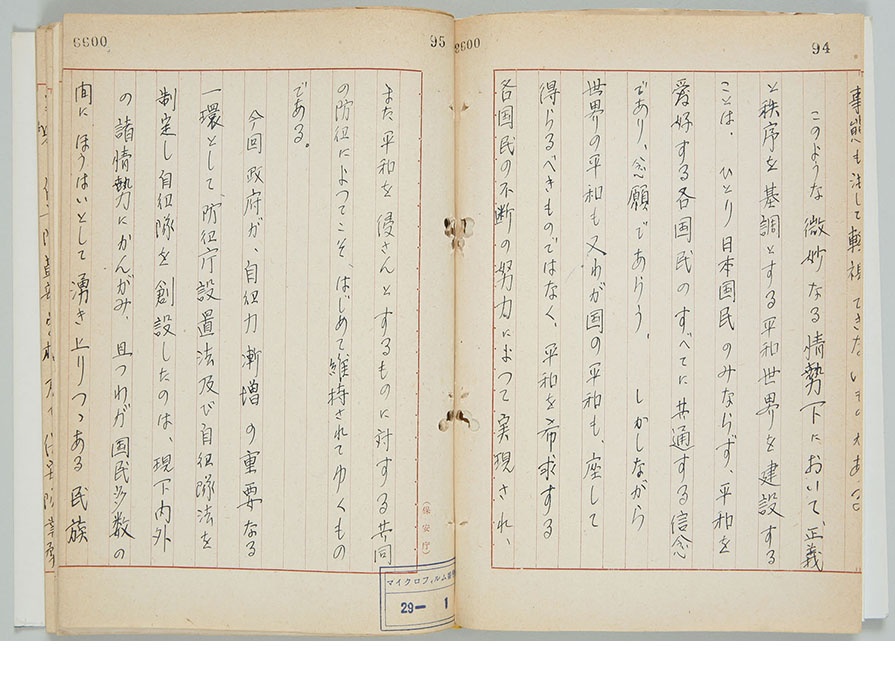 94
このような微妙なる情勢下において、正義
と秩序を基調とする平和世界を建設する
ことは、ひとり日本国民のみならず、平和を
愛好する各国民のすべてに共通する信念
であり、念願であらう。しかしながら
世界の平和も又わが国の平和も、座して
得らるべきものではなく、平和を希求する
各国民の不断の努力によつて実現され、
6600
95
(保安庁)
また平和を侵さんとするものに対する共同
の防衛によつてこそ、はじめて維持されてゆくもの
である。
今回政府が、自衛力漸増の重要なる
一環として、防衛庁設置法及び自衛隊法を
制定し自衛隊を創設したのは、現下内外
の諸情勢にかんがみ、且つわが国民多数の
間にほうはいとして湧き上りつつある民族
6600
マイクロフィルム
29— 1